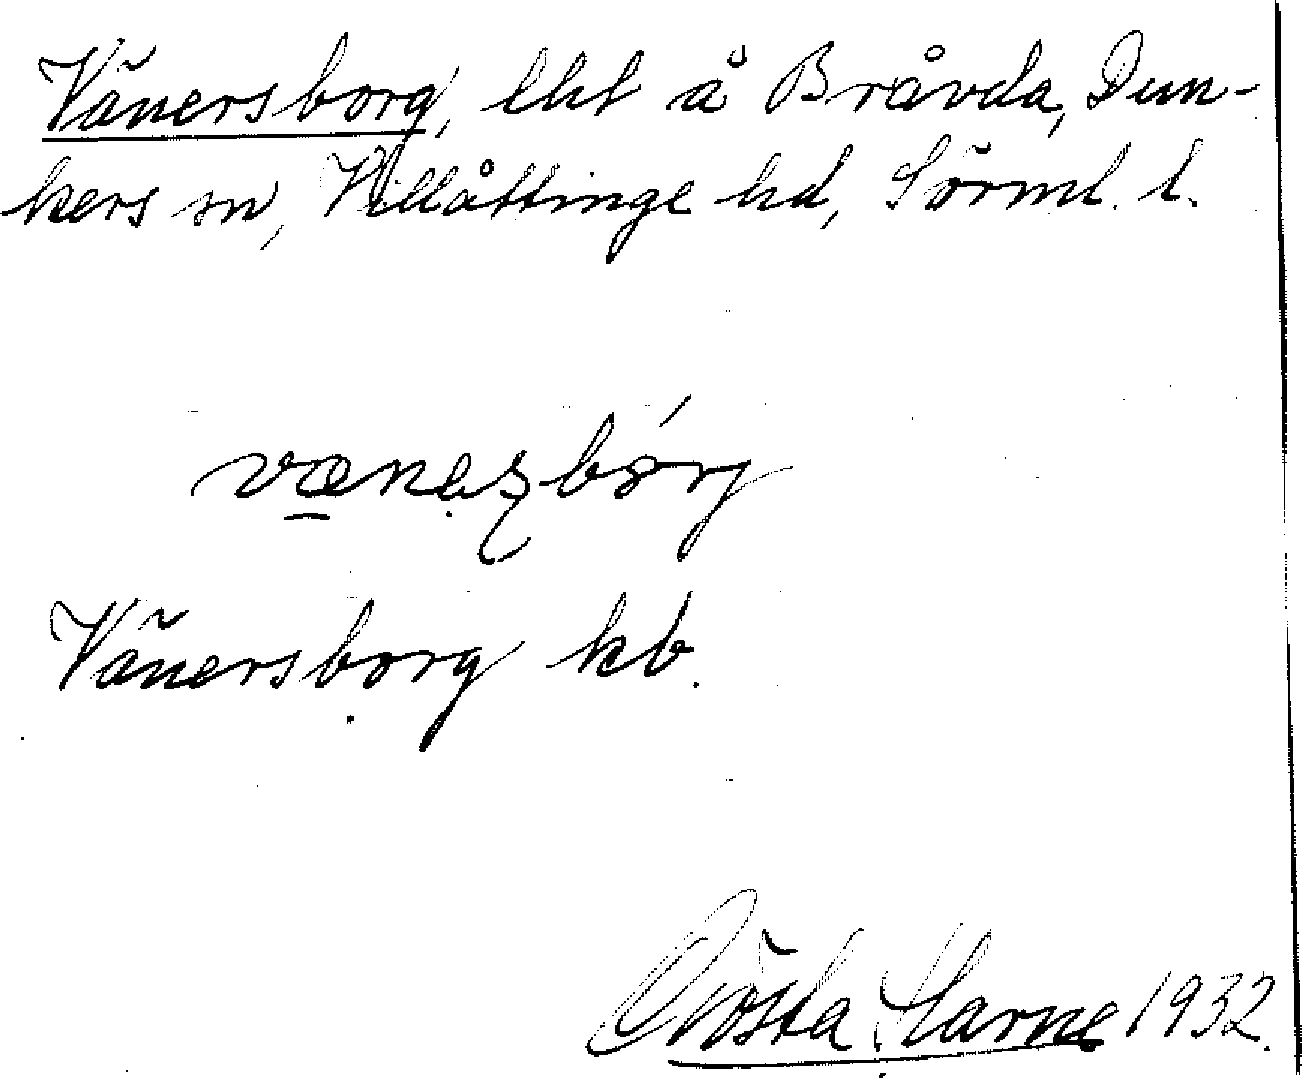 Vänersborg, lht å Bråvda, Dun-
kers sn, Villåttinge hd, Sörml. l.
vænaʂbórj
Vänersborg kb.
Gösta Harne 1932.